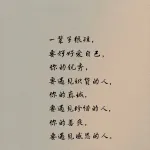 一辈子很短,
要好好爱自己,
你的优秀,
要遇见识货的人,
你的真诚,
要遇见珍惜的人,
你的善良,
要遇见感恩的人,